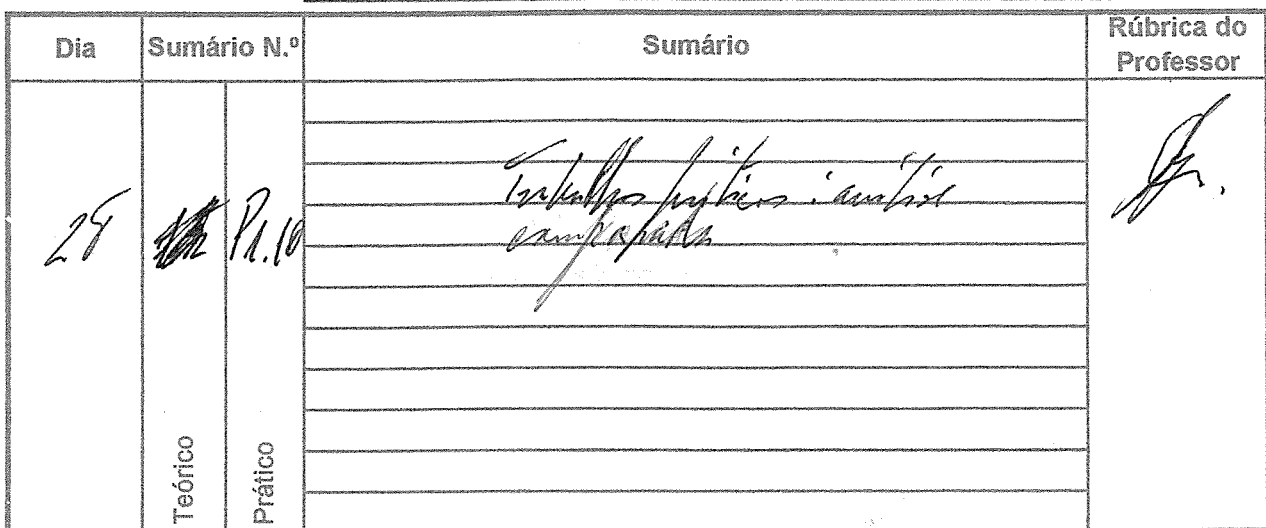 Dia Sumário N.º Sumário Rúbrica do Professor
28 Pr.10
Trabalhos práticos: análise
comparada
Teórico
Prático